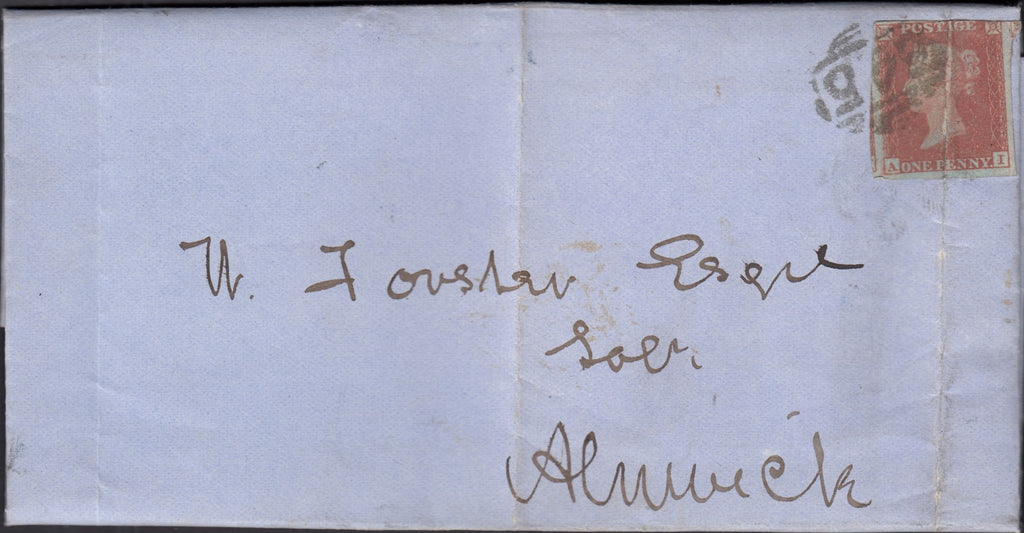 POSTAGE
A ONE PENNY. I
W. Forster Esqre
Solr.
Alnwick